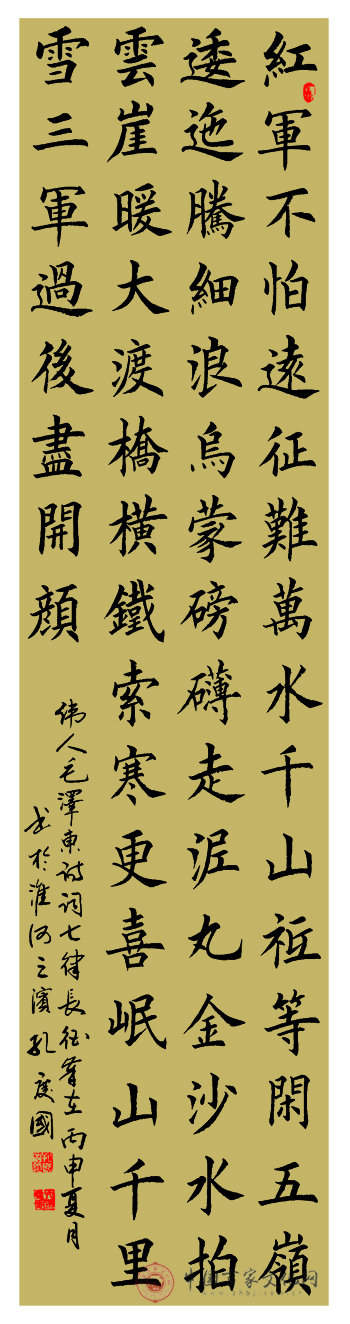 紅軍不怕遠征難萬水千山祗等閑五嶺
逶迤騰細浪烏蒙磅礴走泥丸金沙水拍
雲崖暖大渡橋橫鐵索寒更喜岷山千里
雪三軍過後盡開顔
偉人毛澤東詩詞七律長征歲在丙申夏月
书於淮河之濱孔慶國